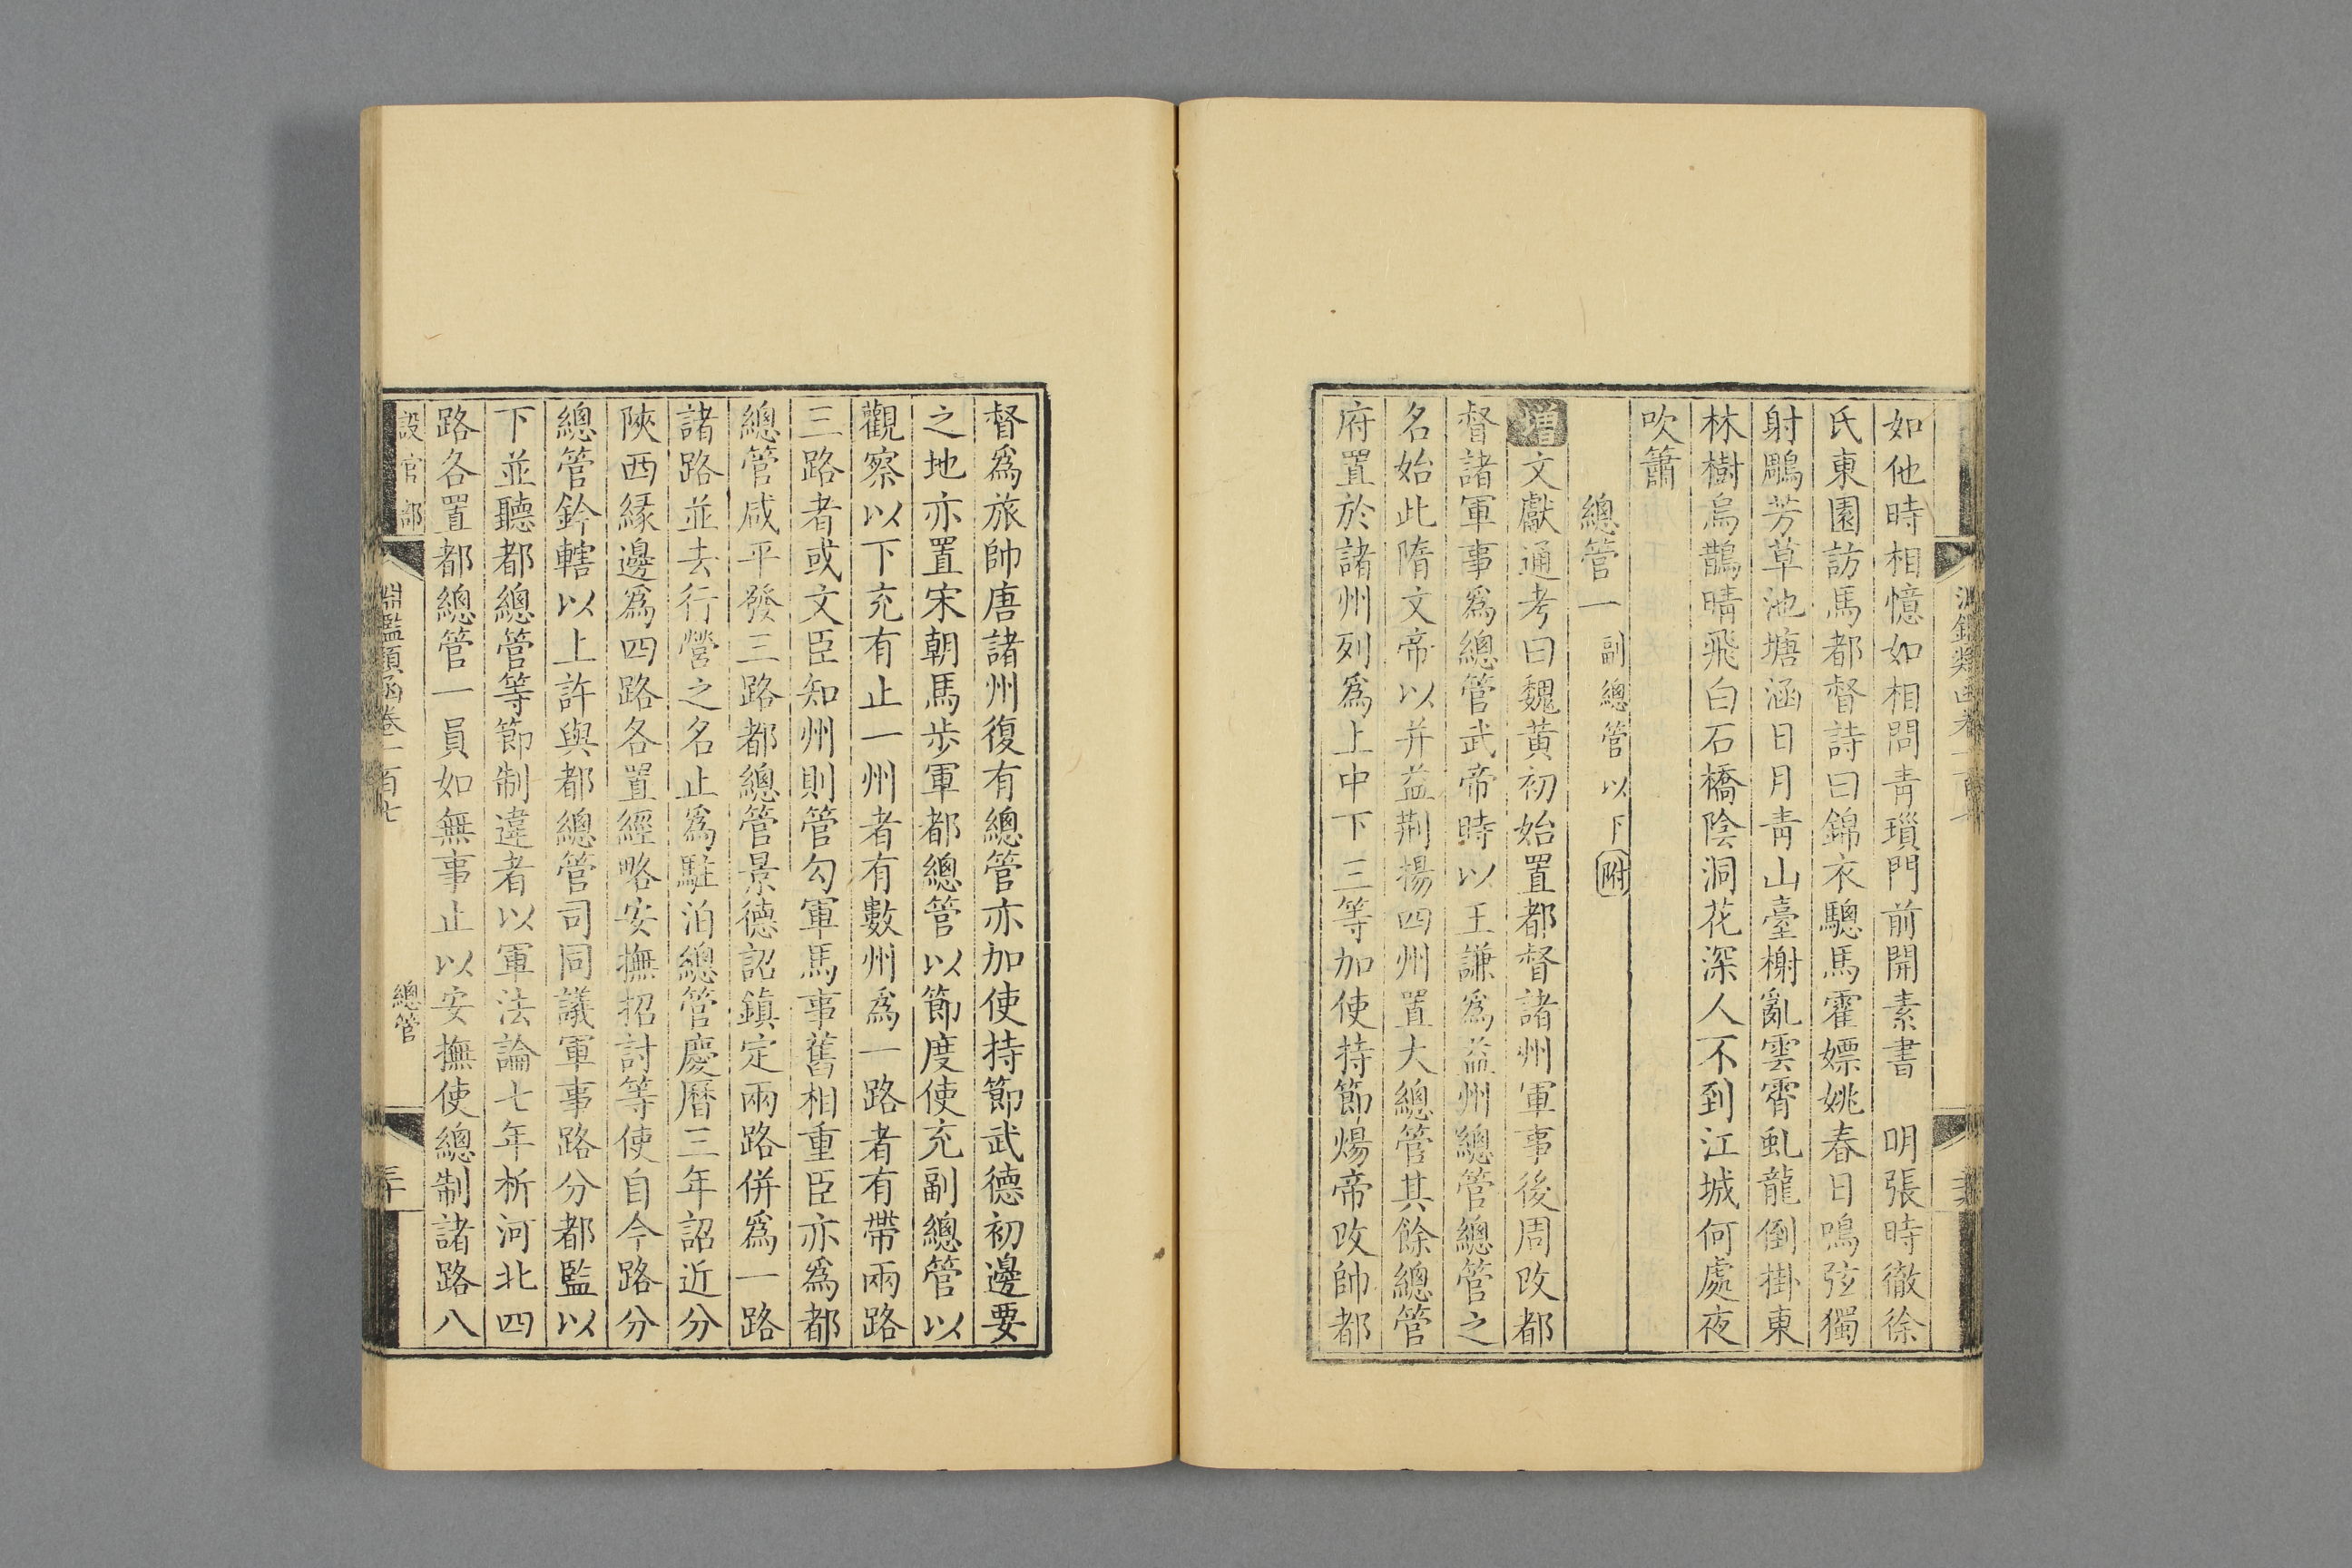 如他時相憶如相問青瑣門前開素書　明張時徹徐
氏東園訪馬都督詩曰錦衣驄馬霍嫖姚春日鳴弦獨
射鵰芳草池塘涵日月青山臺榭亂雲霄虬龍倒掛東
林樹烏鵲晴飛白石橋陰洞花深人不到江城何處夜
吹簫
總管一副總管以下附
增文獻通考曰魏黃初始置都督諸州軍事後周改都
督諸軍事爲總管武帝時以王謙爲益州總管總管之
名始此隋文帝以并益荆揚四州置大總管其餘總管
府置於諸州列爲上中下三等加使持節煬帝改帥都
督爲旅帥唐諸州復有總管亦加使持節武德初邊要
之地亦置宋朝馬步軍都總管以節度使充副總管以
觀察以下充有止一州者有數州爲一路者有帶兩路
三路者或文臣知州則管勾軍馬事舊相重臣亦爲都
總管咸平發三路都總管景德詔鎮定兩路併爲一路
諸路並去行營之名止爲駐泊總管慶曆三年詔近分
陝西緣邊爲四路各置經略安撫招討等使自今路分
總管鈐轄以上許與都總管司同議軍事路分都監以
下並聽都總管等節制違者以軍法論七年析河北四
路各置都總管一員如無事止以安撫使總制諸路八
設官部
淵鑑類函卷一百七
總管